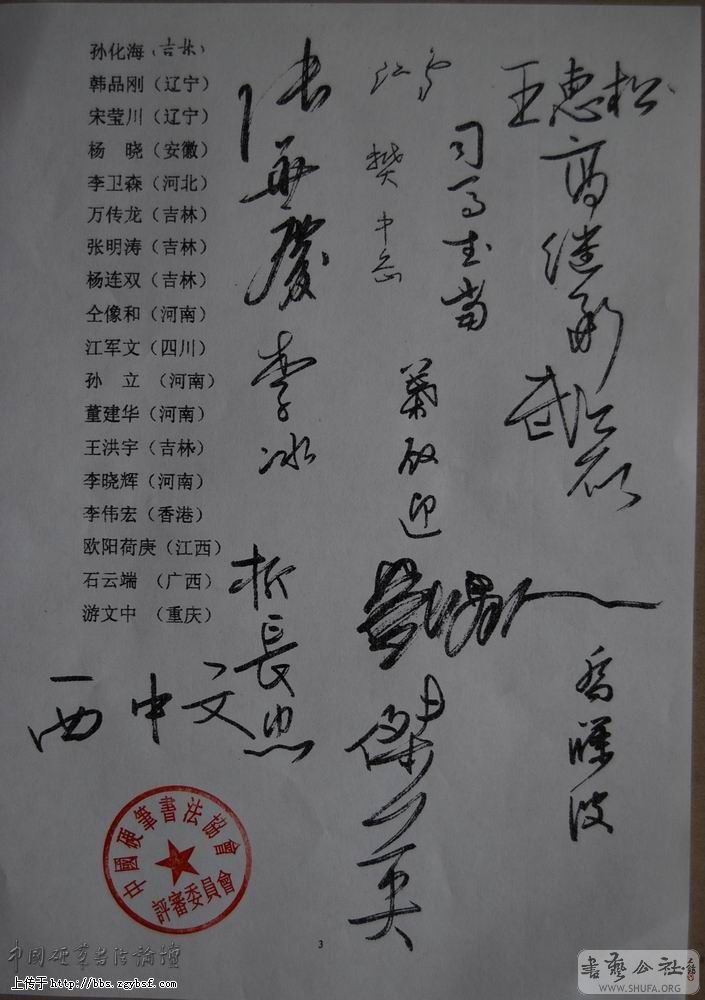 孙化海（吉林）
韩品刚（辽宁）
宋莹川（辽宁）
杨　晓（安徽）
李卫森（河北）
万传龙（吉林）
张明涛（吉林）
杨连双（吉林）
仝像和（河南）
江军文（四川）
孙　立（河南）
董建华（河南）
王洪宇（吉林）
李晓辉（河南）
李伟宏（香港）
欧阳荷庚（江西）
石云端（广西）
游文中（重庆）
张华庆
李冰
折長忠
西中文
江鸿
樊中岳
司马武当
王惠松
高继承
傑英
中國硬筆書法協會
評審委員會
3
中国硬筆书法论壇
上传于 http://bbs.zgybsf.com
書藝公社
WWW.SHUFA.ORG